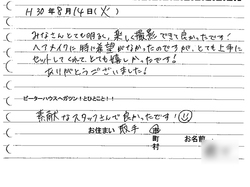 H30年8月14日(火)
みなさんとても明るく、楽しく撮影できて良かったです!
ヘアメイクに特に希望がなかったのですが、とても上手に
セットしてくれて、とても嬉しかったです!
ありがとうございました!
ピーターハウスへガツン!とひとこと!!
素敵なスタッフさんで良かったです!
お住まい 取手 市 町 村 お名前